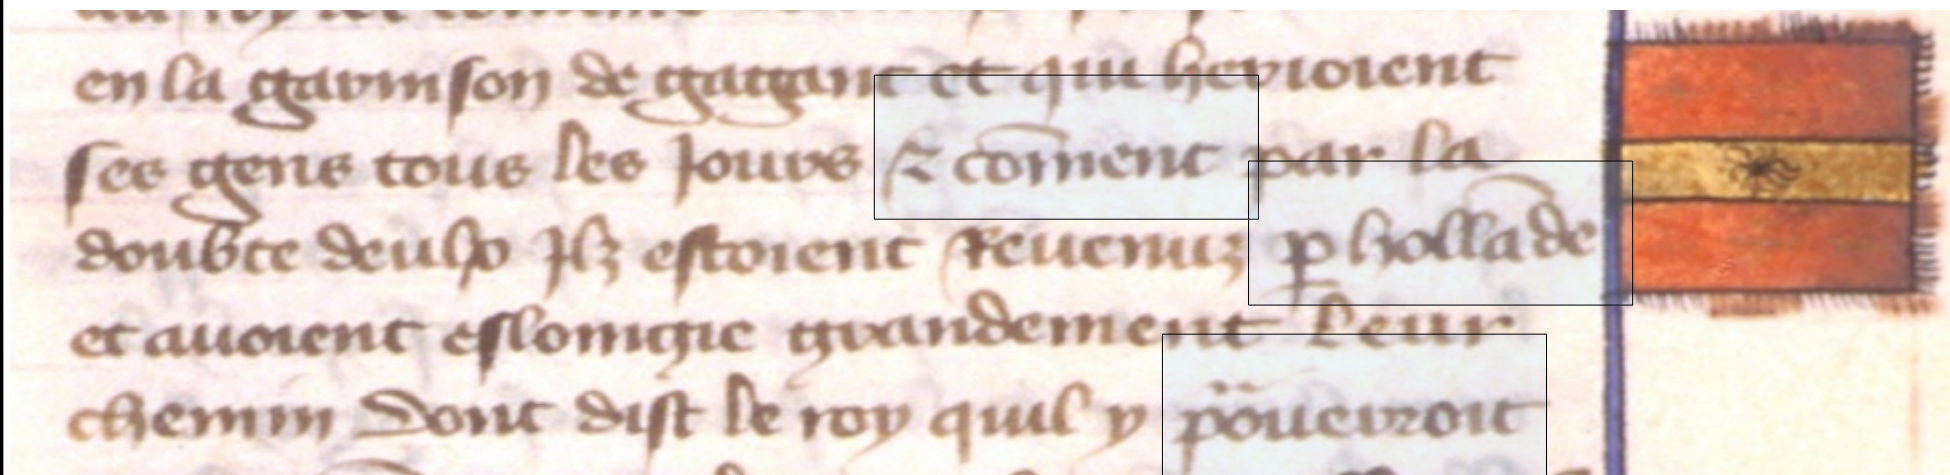 en la garnison de gagant et qui herioient
ses gens tous les Jours & com̄ent par la
doubte deulx Ilz estoient Reuenuz ꝑ hollāde
et auoient eslongie grandement Leur
chemin Dont dist le roy quil y po̷ueirroit